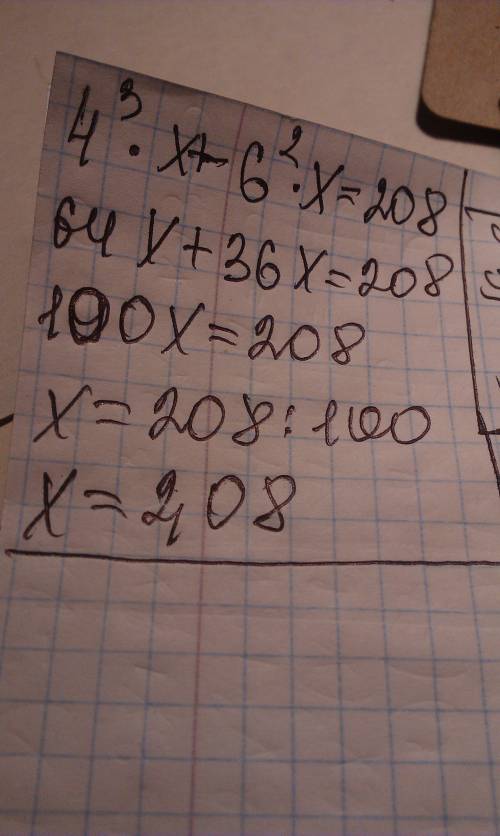 4³ · x + 6² · x = 208
64x + 36x = 208
100x = 208
x = 208 : 100
x = 2,08